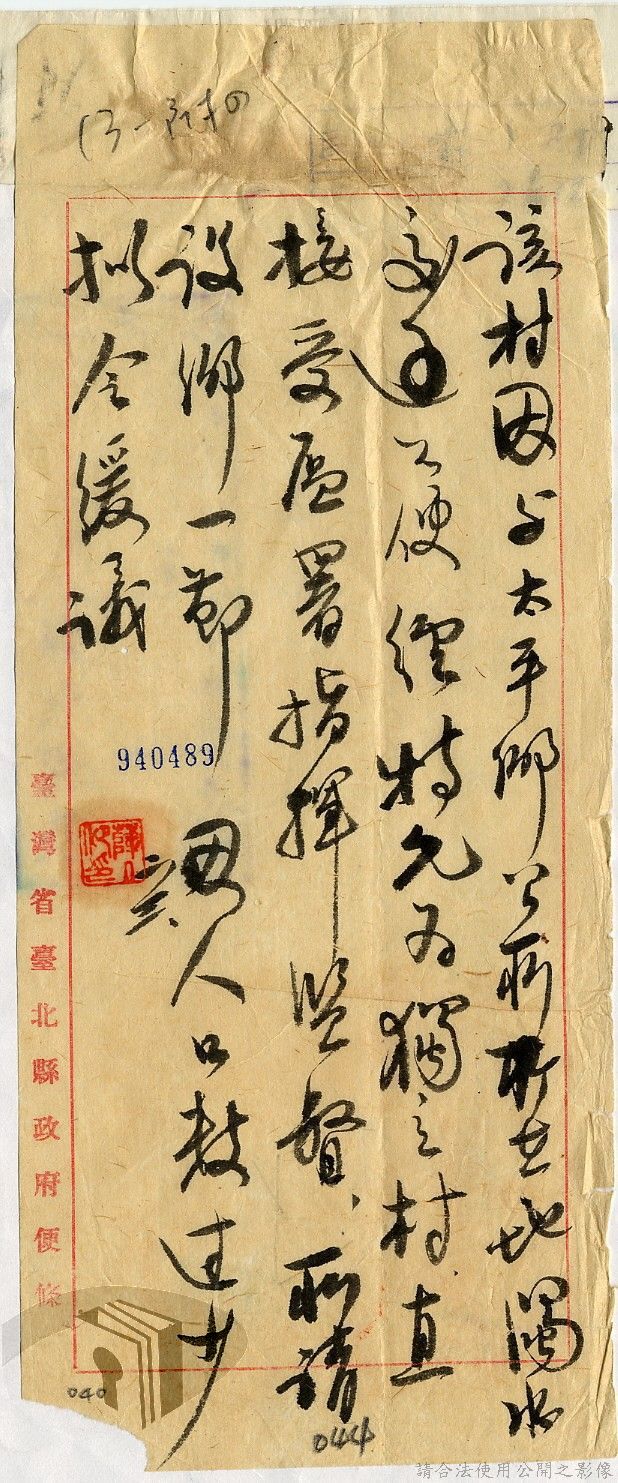 該村因与太平鄉公所所在地隔水
交通不便經特允为獨立村直
接受區署指揮監督、所請
設鄉一節 因人口数过少
拟令緩議
940489
臺灣省臺北縣政府便條
040
044
請合法使用公開之影像